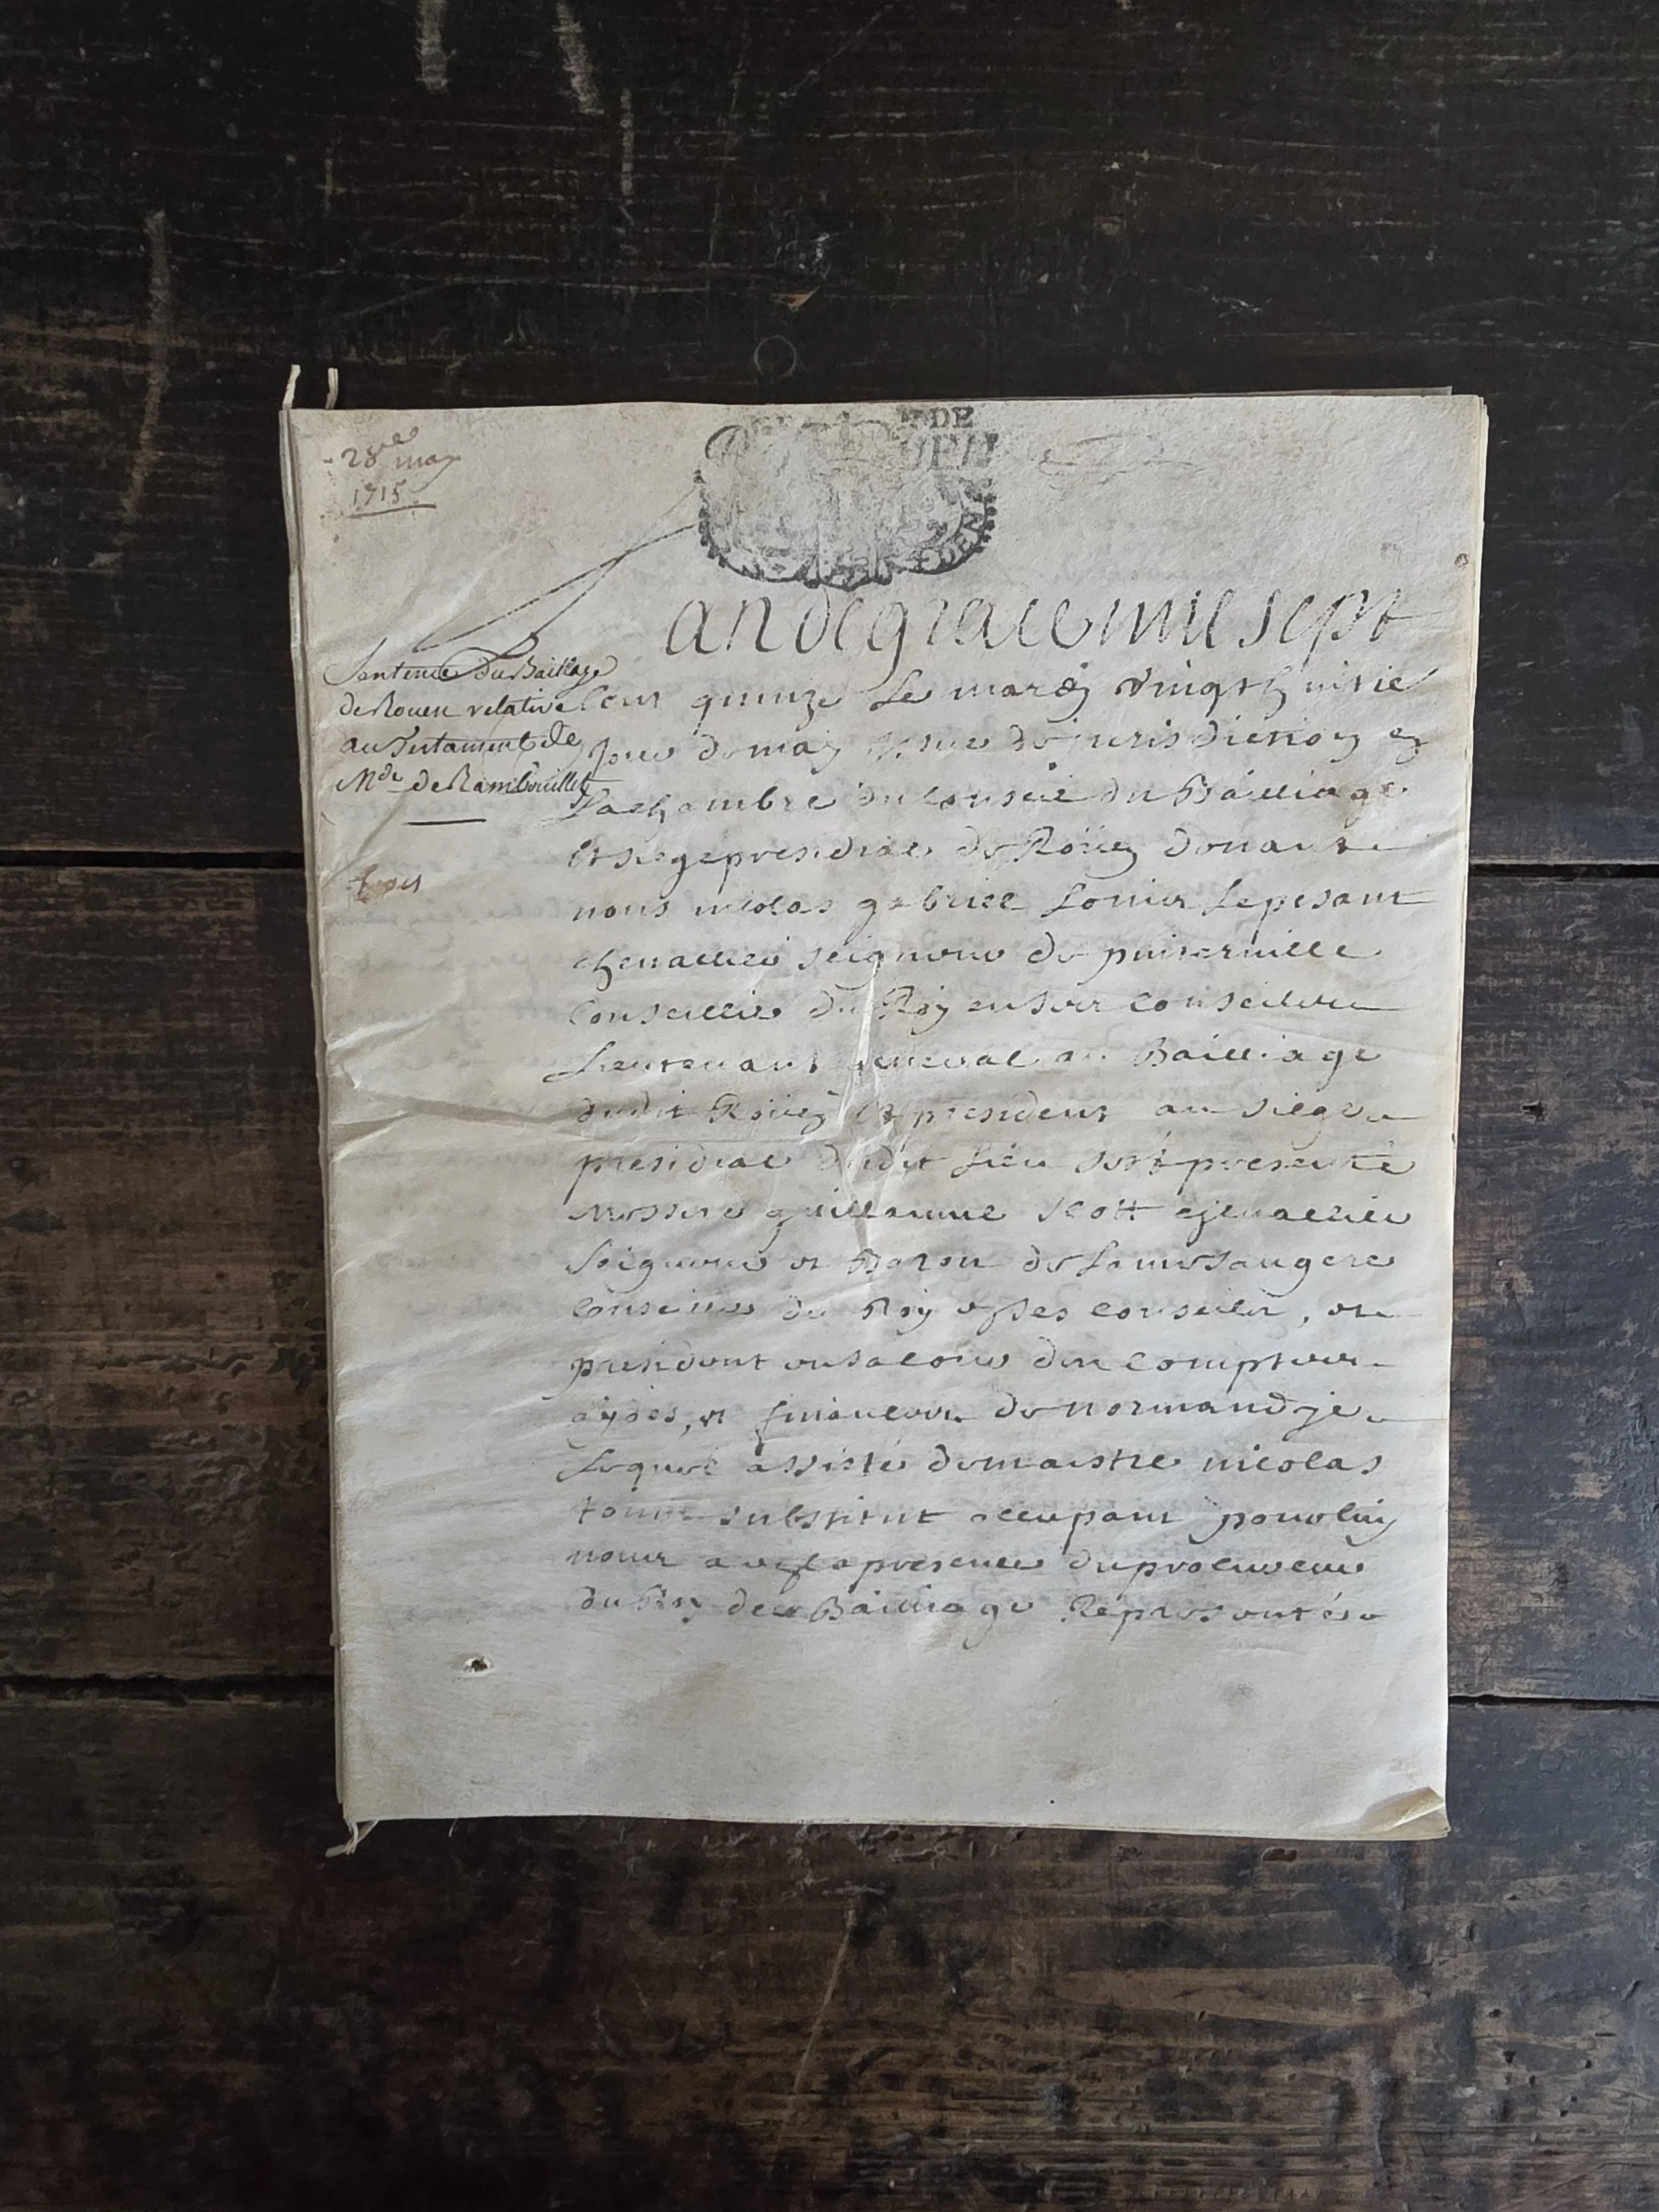 28e may
1715
DE
ROUEN
L'an de grace mil sept
Sentence du Bailliage
de Rouen relative
au Testament de
Mde de Rambouillet
Cent quinze Le mardy vingt huitie
Jour de may jurisdiction en
La chambre du Conseil du Bailliage
Et siege presidial de Roüen devant
nous nicolas gabriel Louis Lepesant
chevallier seigneur de
Conseiller du Roy en ses conseils
Lieutenant general au Bailliage
dudit Roüen Et president au siege
presidial dudit Lieu s'est presenté
Messire guillaume scott chevallier
Seigneur et Baron de Lamesangere
Conseiller du Roy en ses conseils, et
president en sa cour des comptes
aydes, et finances de normandje
Lequel assisté de maistre nicolas
substitut occupant pour luy
nous a en la presence du procureur
du Roy de ce Bailliage Representé